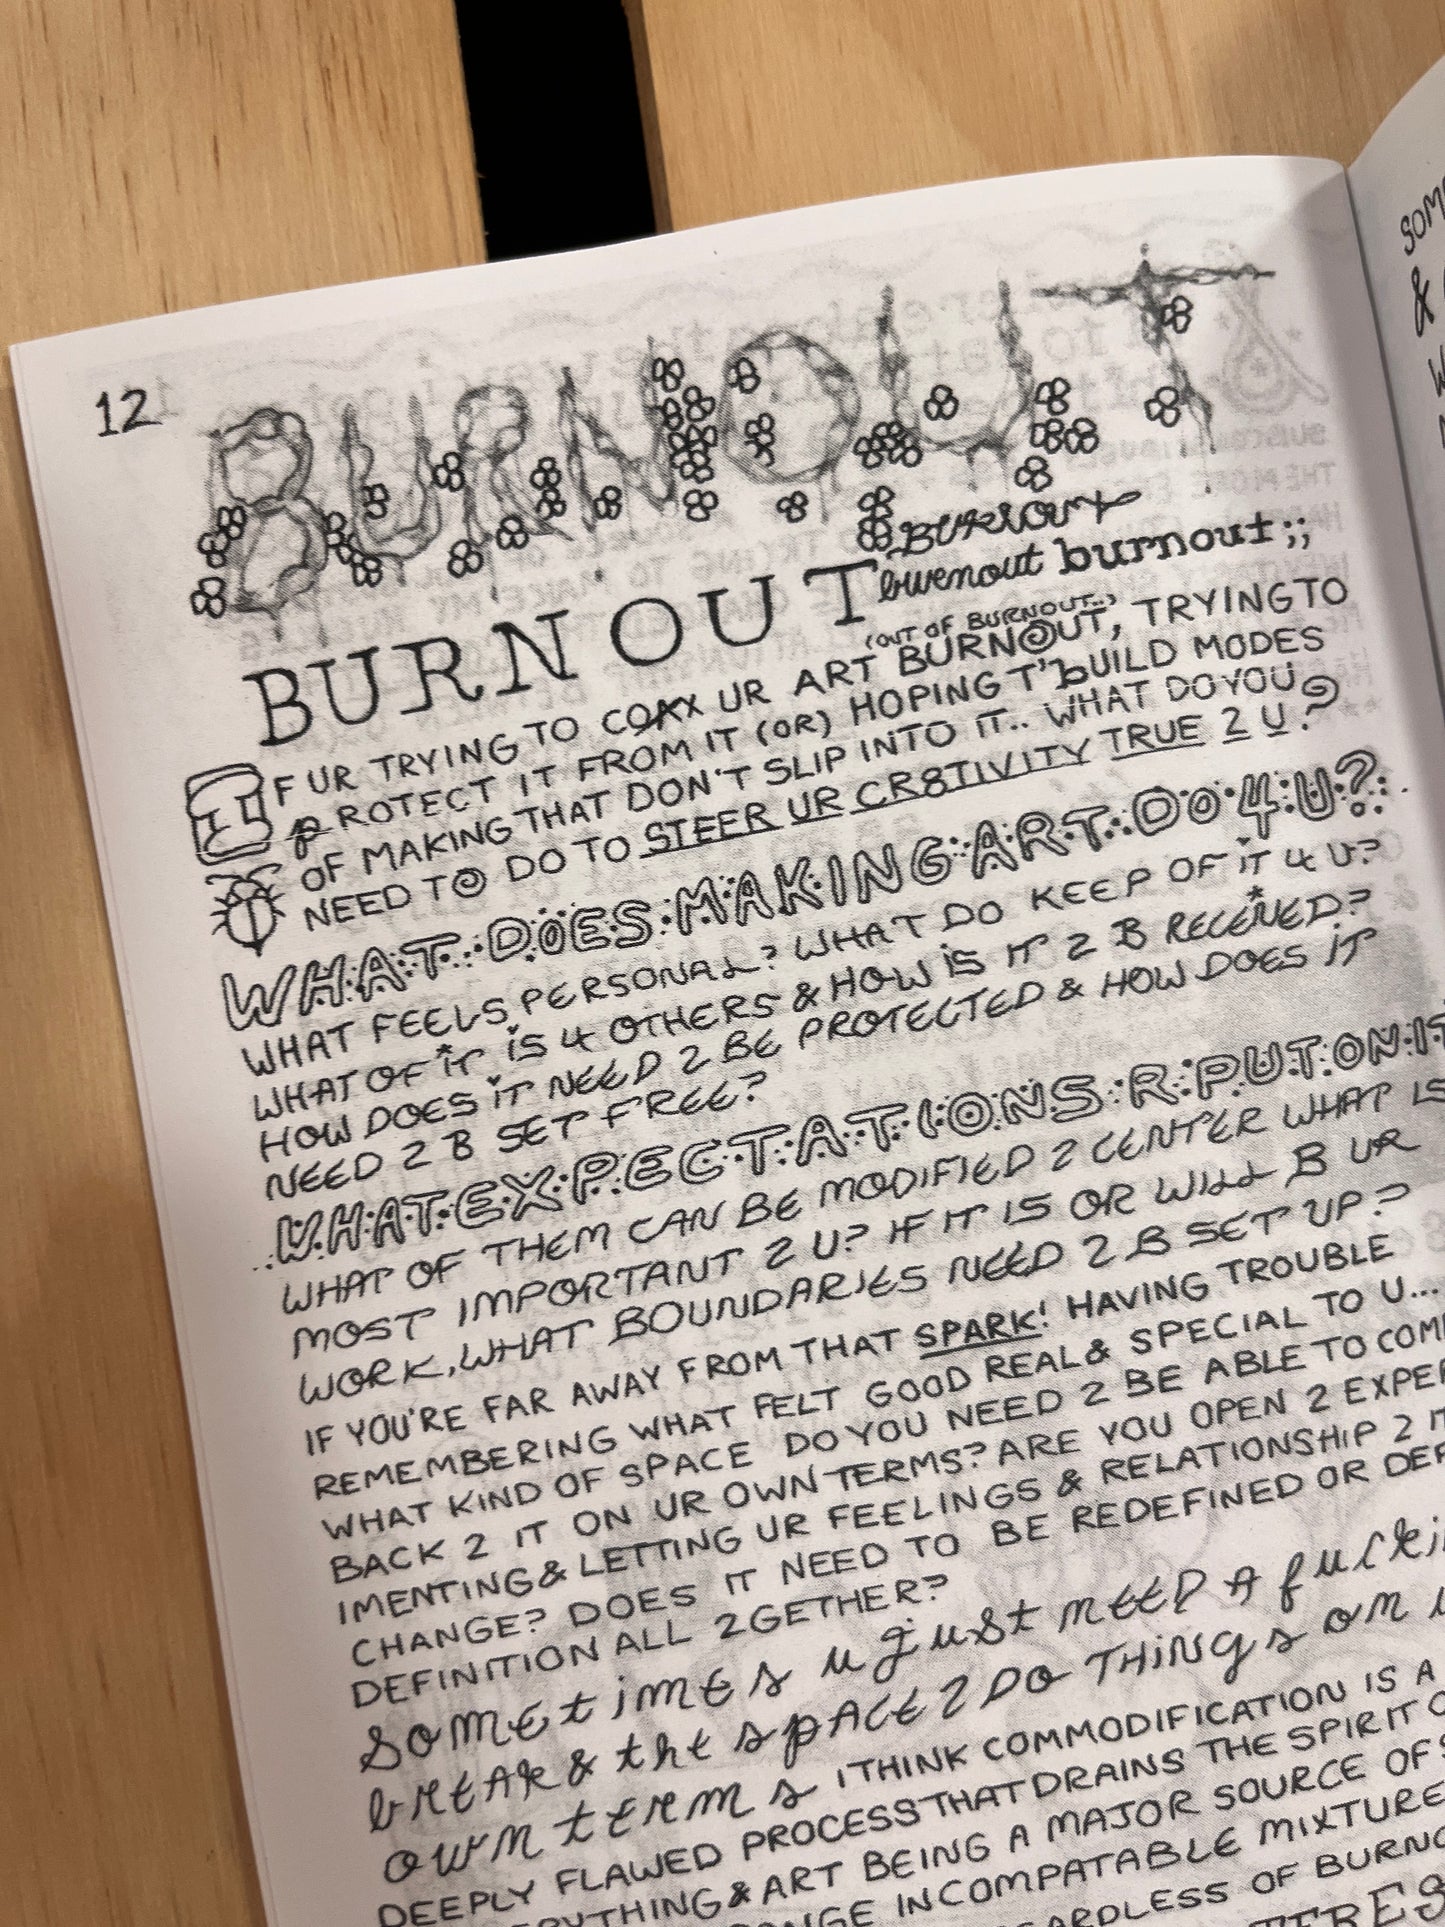 12
BURNOUT
BURNOUT
BURNOUT burnout burnout;;
(OUT OF BURNOUT..)
IF UR TRYING TO COAX UR ART BURNOUT, TRYING TO
PROTECT IT FROM IT (OR) HOPING T'BUILD MODES
OF MAKING THAT DON'T SLIP INTO IT.. WHAT DO YOU
NEED TO DO TO STEER UR CR8TIVITY TRUE 2 U?
WHAT DOES MAKING ART DO 4 U?
WHAT FEELS PERSONAL? WHAT DO KEEP OF iT 4 U?
WHAT OF iT iS 4 OTHERS & HOW iS IT 2 B RECEIVED?
HOW DOES iT NEED 2 BE PROTECTED & HOW DOES iT
NEED 2 B SET FREE?
WHAT EXPECTATIONS R PUT ON IT
WHAT OF THEM CAN BE MODIFIED 2 CENTER WHAT IS
MOST IMPORTANT 2 U? IF IT IS OR WILL B UR
WORK, WHAT BOUNDARIES NEED 2 B SET UP?
IF YOU'RE FAR AWAY FROM THAT SPARK! HAVING TROUBLE
REMEMBERING WHAT FELT GOOD REAL & SPECIAL TO U...
WHAT KIND OF SPACE DO YOU NEED 2 BE ABLE TO COM
BACK 2 IT ON UR OWN TERMS? ARE YOU OPEN 2 EXPER
IMENTING & LETTING UR FEELINGS & RELATIONSHIP 2 IT
CHANGE? DOES IT NEED TO BE REDEFINED OR DEF
DEFINITION ALL 2GETHER?
sometimes u just NEED A fucki
break & the spACE 2 DO THiNGs on
own terms I THINK COMMODIFICATION IS A
DEEPLY FLAWED PROCESS THAT DRAINS THE SPIRIT O
ERYTHING & ART BEING A MAJOR SOURCE OF
NGE INCOMPATABLE MIXTURE
ARDLESS OF BURNO
TERES
SOM
&